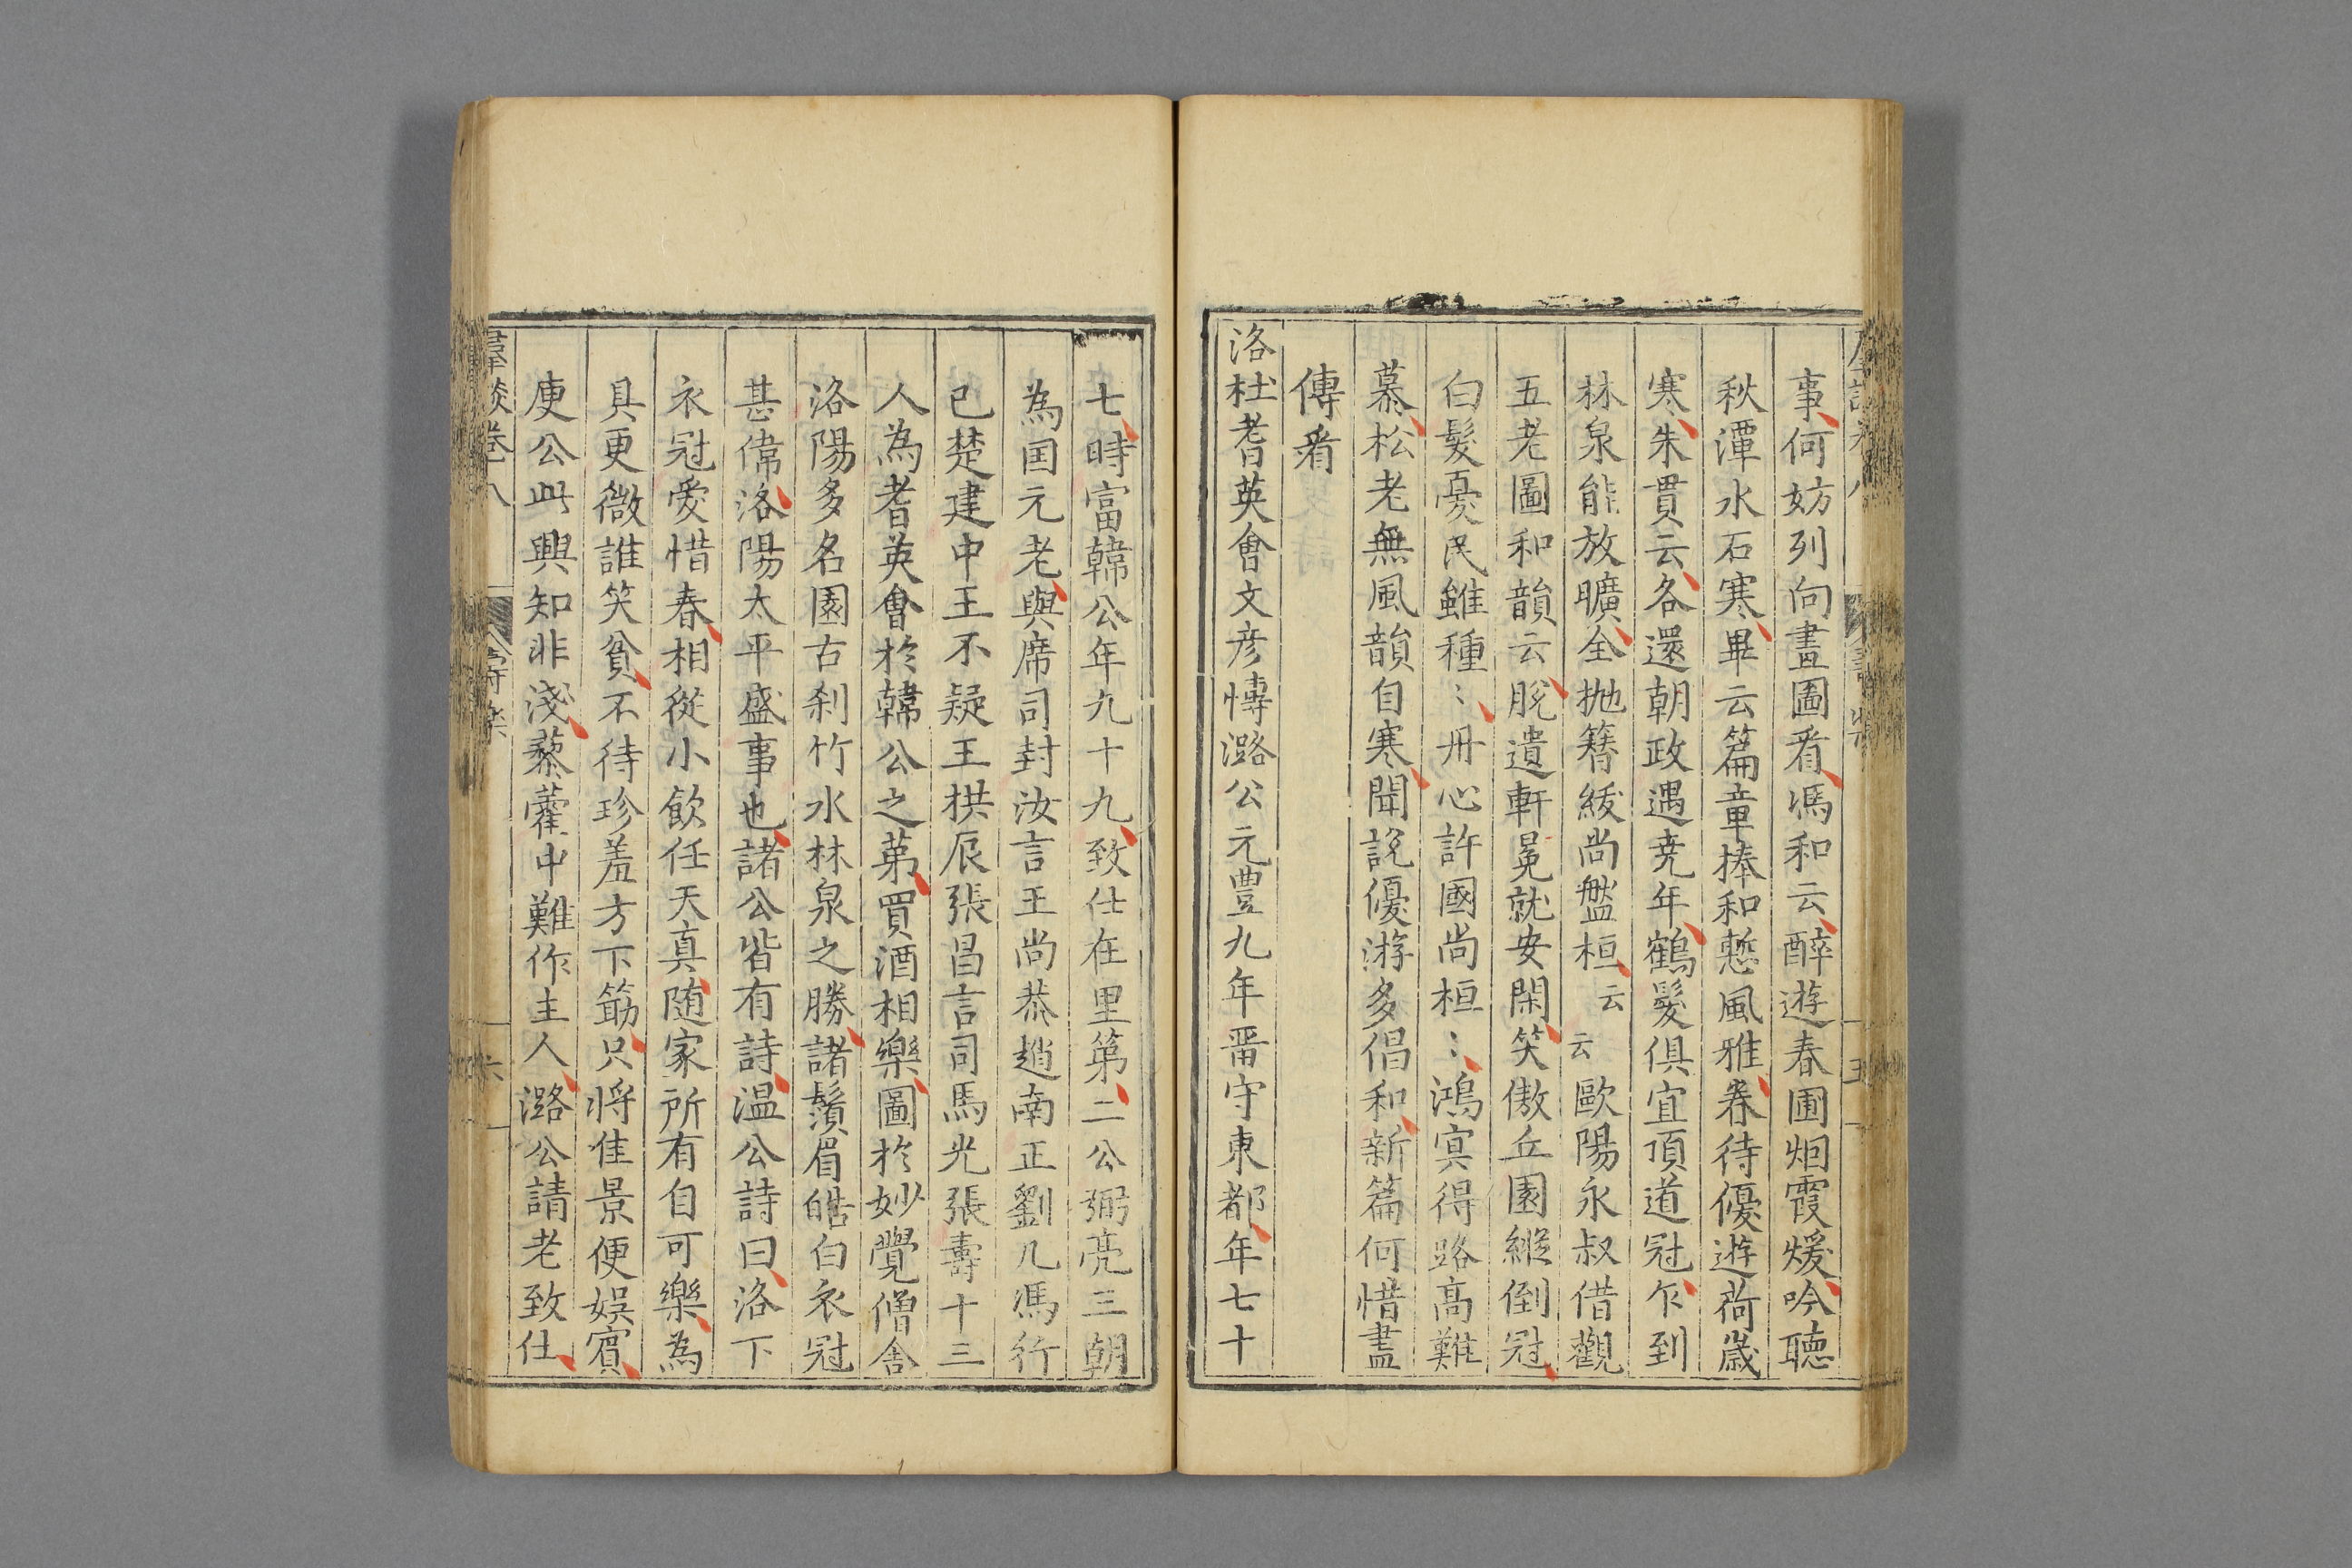 事何妨列向畫圖看馮和云醉遊春圃烟霞煖吟聽
秋潭水石寒畢云篇章捧和慙風雅眷待優遊荷歲
寒朱貫云各還朝政遇尭年鶴髮俱宜頂道冠乍到
林泉能放曠全抛簪紱尚盤桓云云歐陽永叔借觀
五老圖和韻云脫遺軒冕就安閑笑傲丘園縱倒冠
白髮憂民雖種〻丹心許國尚桓〻鴻冥得路高難
慕松老無風韻自寒聞說優游多倡和新篇何惜盡
傳看
洛社耆英會文彥博潞公元豊九年畱守東都年七十
七時富韓公年九十九致仕在里第二公弼亮三朝
為囯元老與席司封汝言王尚恭趙南正劉几馮行
已楚建中王不疑王拱辰張昌言司馬光張壽十三
人為耆英會於韓公之第買酒相樂圖於妙覺僧舎
洛陽多名園古刹竹水林泉之勝諸鬚眉皓白衣冠
甚偉洛陽太平盛事也諸公皆有詩温公詩曰洛下
衣冠愛惜春相從小飲任天真随家所有自可樂為
具更微誰笑貧不待珍羞方下筯只将佳景便娯賔
庾公此興知非淺藜藿中難作主人潞公請老致仕
羣談卷八
六